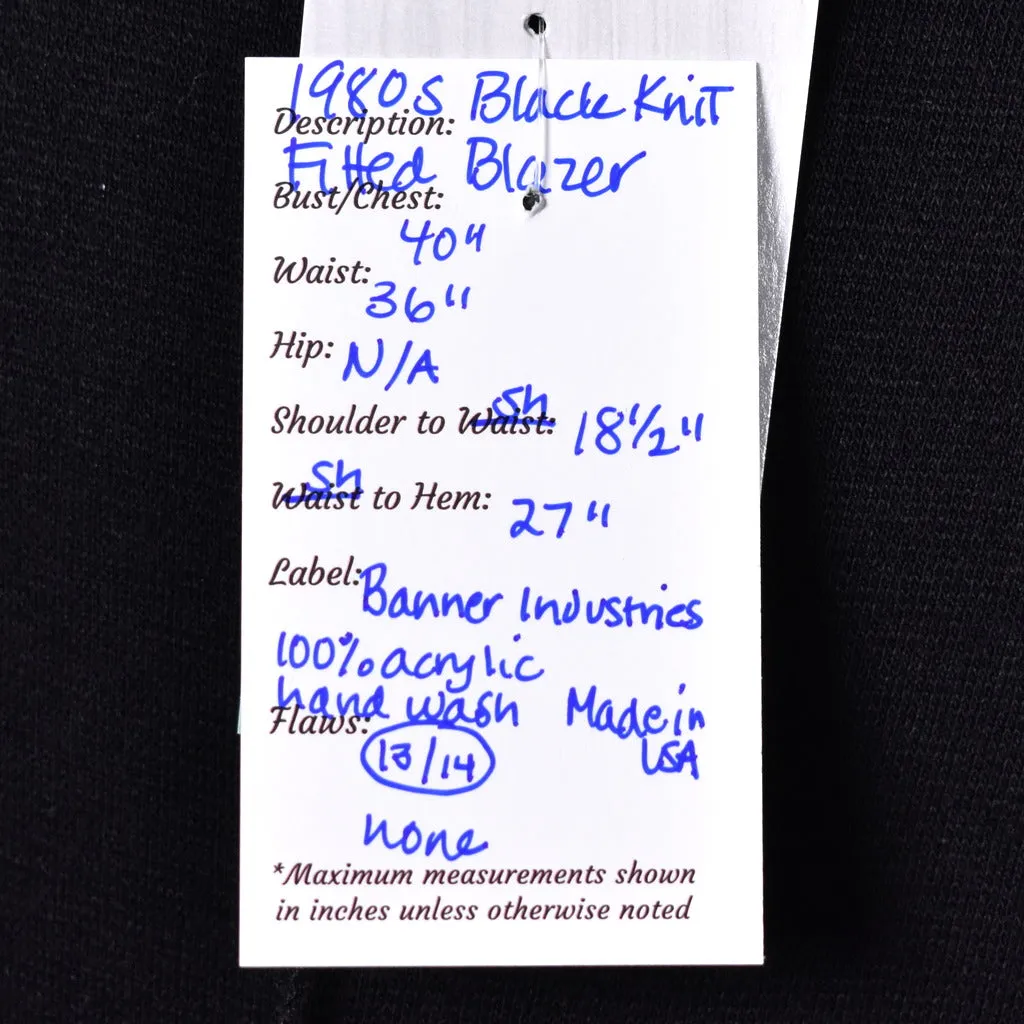 1980s Black Knit
Description:
Fitted Blazer
Bust/Chest:
40"
Waist:
36"
Hip: N/A
Shoulder to Waist: sh 18 1/2"
Waist sh to Hem: 27"
Label: Banner Industries
100% acrylic
hand wash Made in
Flaws: USA
13/14
none
*Maximum measurements shown
in inches unless otherwise noted